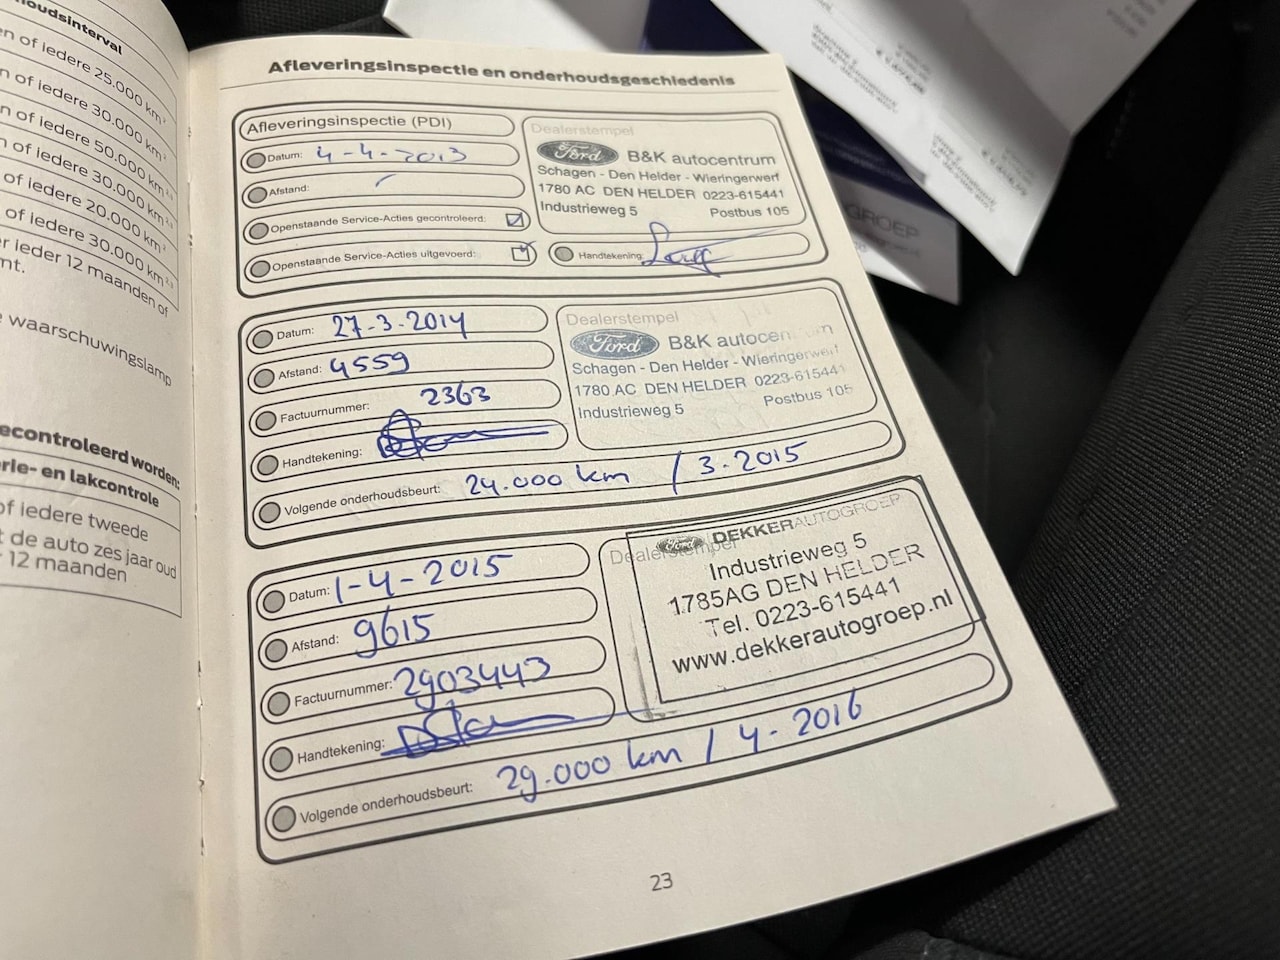 oudsinterval
en of iedere 25.000 km
n of iedere 30.000 km
n of iedere 50.000 km
n of iedere 30.000 km
of iedere 20.000 km
of iedere 30.000 km
r ieder 12 maanden of
mt.
waarschuwingslamp
econtroleerd worden:
rie- en lakcontrole
of iedere tweede
t de auto zes jaar oud
12 maanden
Afleveringsinspectie en onderhoudsgeschiedenis
Afleveringsinspectie (PDI)
Datum: 4-4-2013
Afstand:
Openstaande Service-Acties gecontroleerd:
Openstaande Service-Acties uitgevoerd:
Dealerstempel
Ford B&K autocentrum
Schagen - Den Helder - Wieringerwerf
1780 AC DEN HELDER 0223-615441
Industrieweg 5 Postbus 105
Handtekening:
Datum: 27-3-2014
Afstand: 4559
Factuurnummer: 2363
Handtekening:
Volgende onderhoudsbeurt: 24.000 km / 3-2015
Dealerstempel
Ford B&K autocentrum
Schagen - Den Helder - Wieringerwerf
1780 AC DEN HELDER 0223-615441
Industrieweg 5 Postbus 105
Datum: 1-4-2015
Afstand: 9615
Factuurnummer: 2903443
Handtekening:
Volgende onderhoudsbeurt: 29.000 km / 4-2016
Dealerstempel
Ford DEKKERAUTOGROEP
Industrieweg 5
1785AG DEN HELDER
Tel. 0223-615441
www.dekkerautogroep.nl
23
GROEP